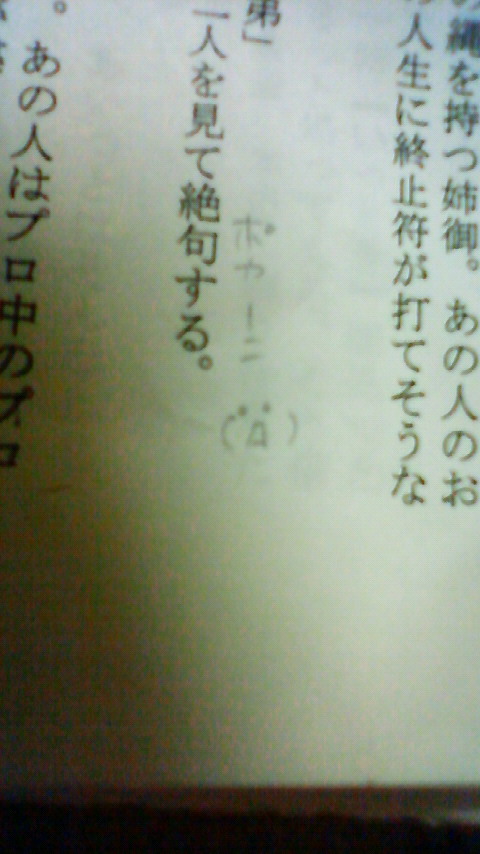 縄を持つ姉御。あの人のお
人生に終止符が打てそうな
弟」
ポカーニ
(゜Д゜)
一人を見て絶句する。
。あの人はプロ中のプロ